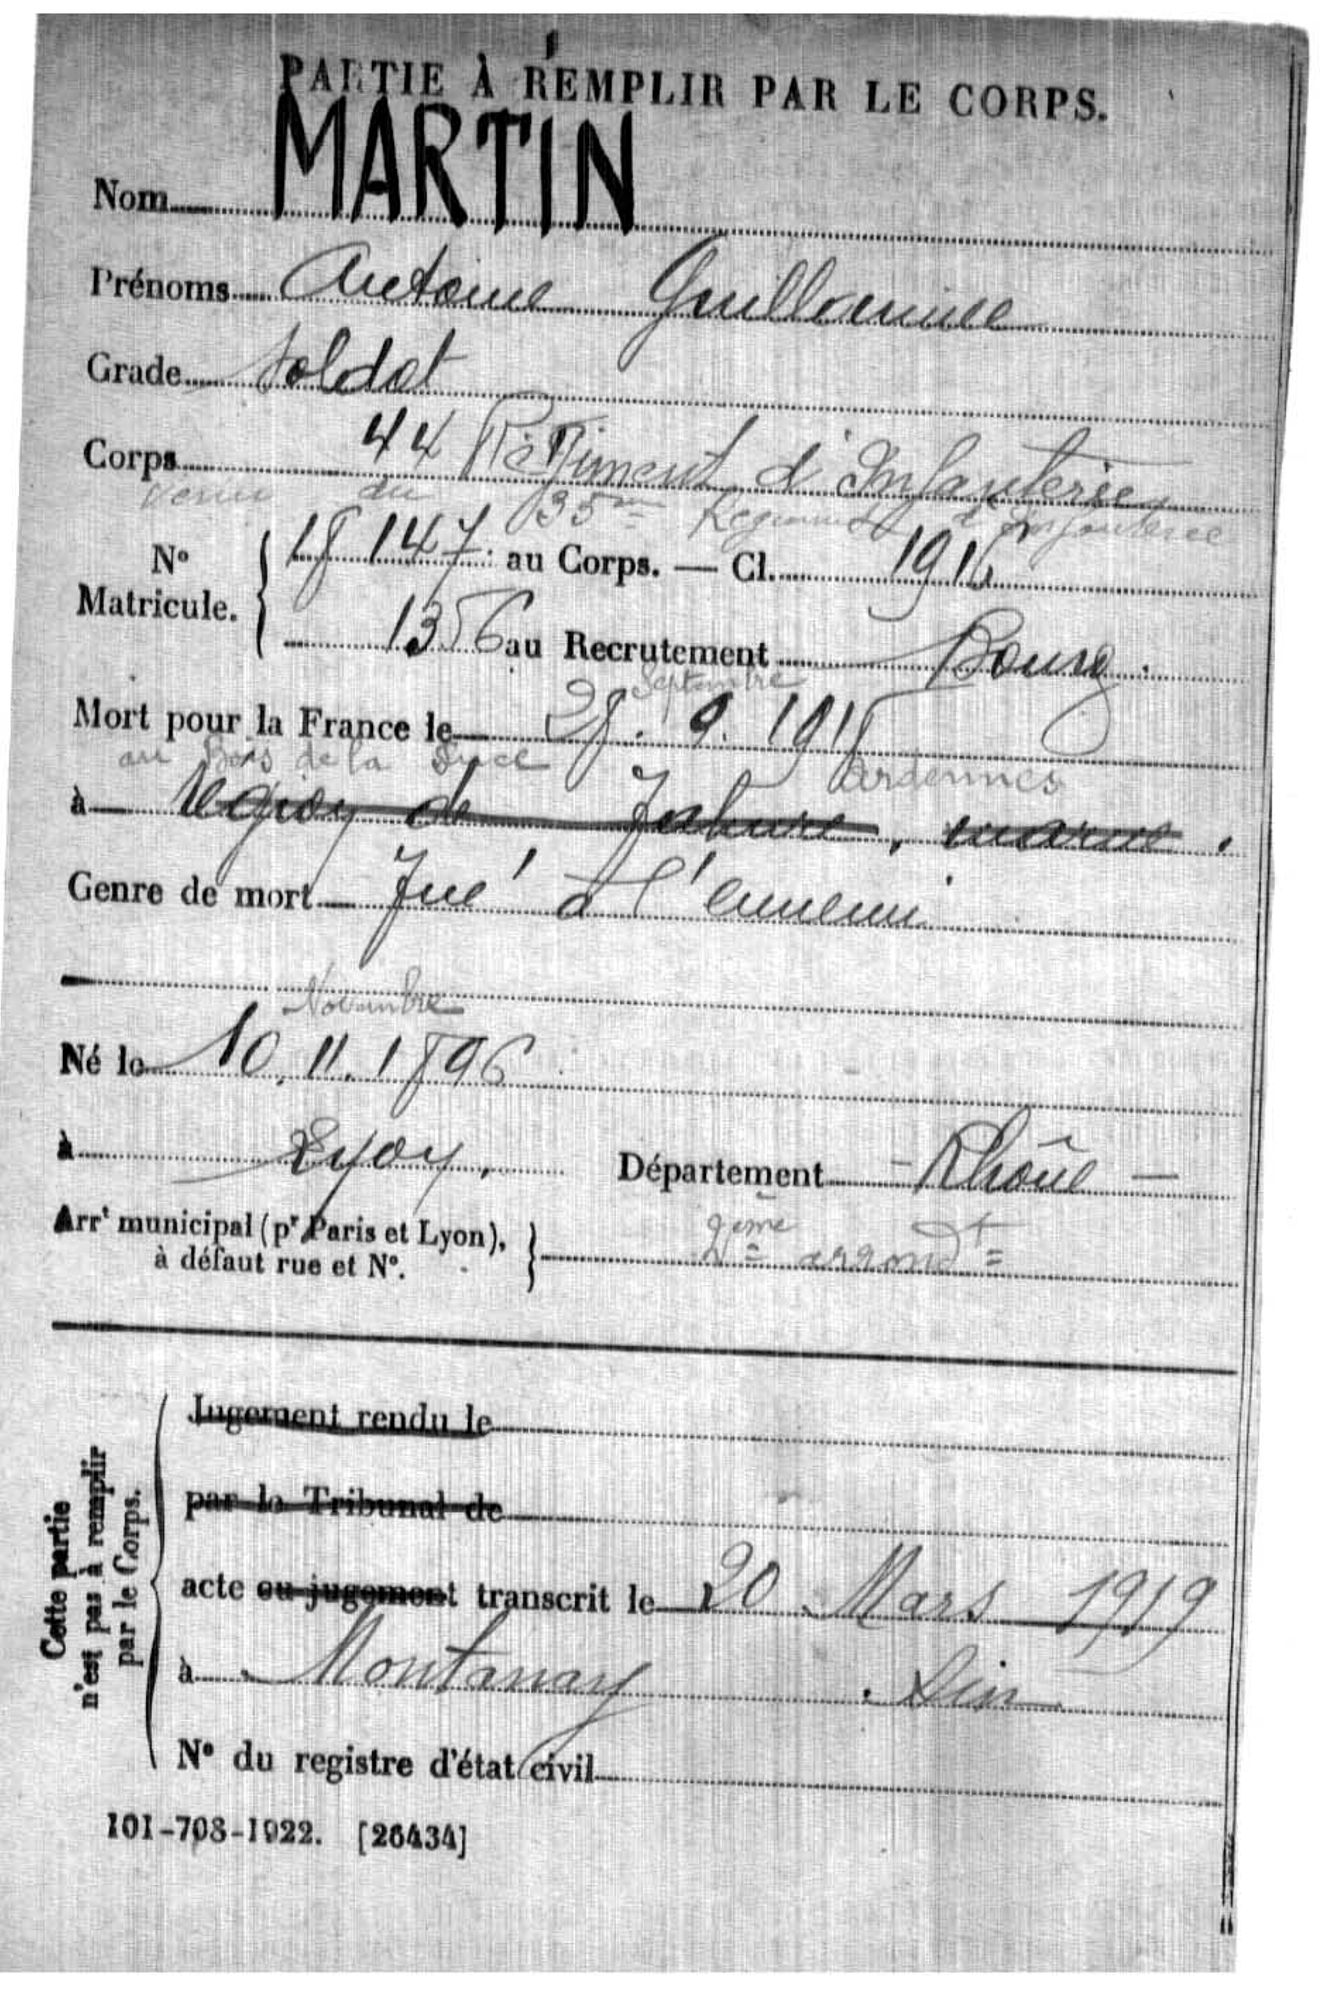 PARTIE À REMPLIR PAR LE CORPS.
Nom MARTIN
Prénoms Antoine Guillaume
Grade Soldat
Corps 44 Régiment d'Infanterie
venu du 35me Régiment d'Infanterie
No Matricule. { 18147 au Corps. — Cl. 1916
1356 au Recrutement Bourg.
Septembre
Mort pour la France le 28. 9. 1918
au Bois de la Ardennes
à région de Tahure, marne.
Genre de mort Tué à l'ennemi
Novembre
Né le 10.11.1896
à Lyon, Département - Rhône -
Arrt municipal (pr Paris et Lyon), à défaut rue et No. } 2ème arrondt
Cette partie n'est pas à remplir par le Corps.
Jugement rendu le
par le Tribunal de
acte ou jugement transcrit le 20 Mars 1919
à Montanay. Ain
No du registre d'état civil
101-708-1922. [26434]